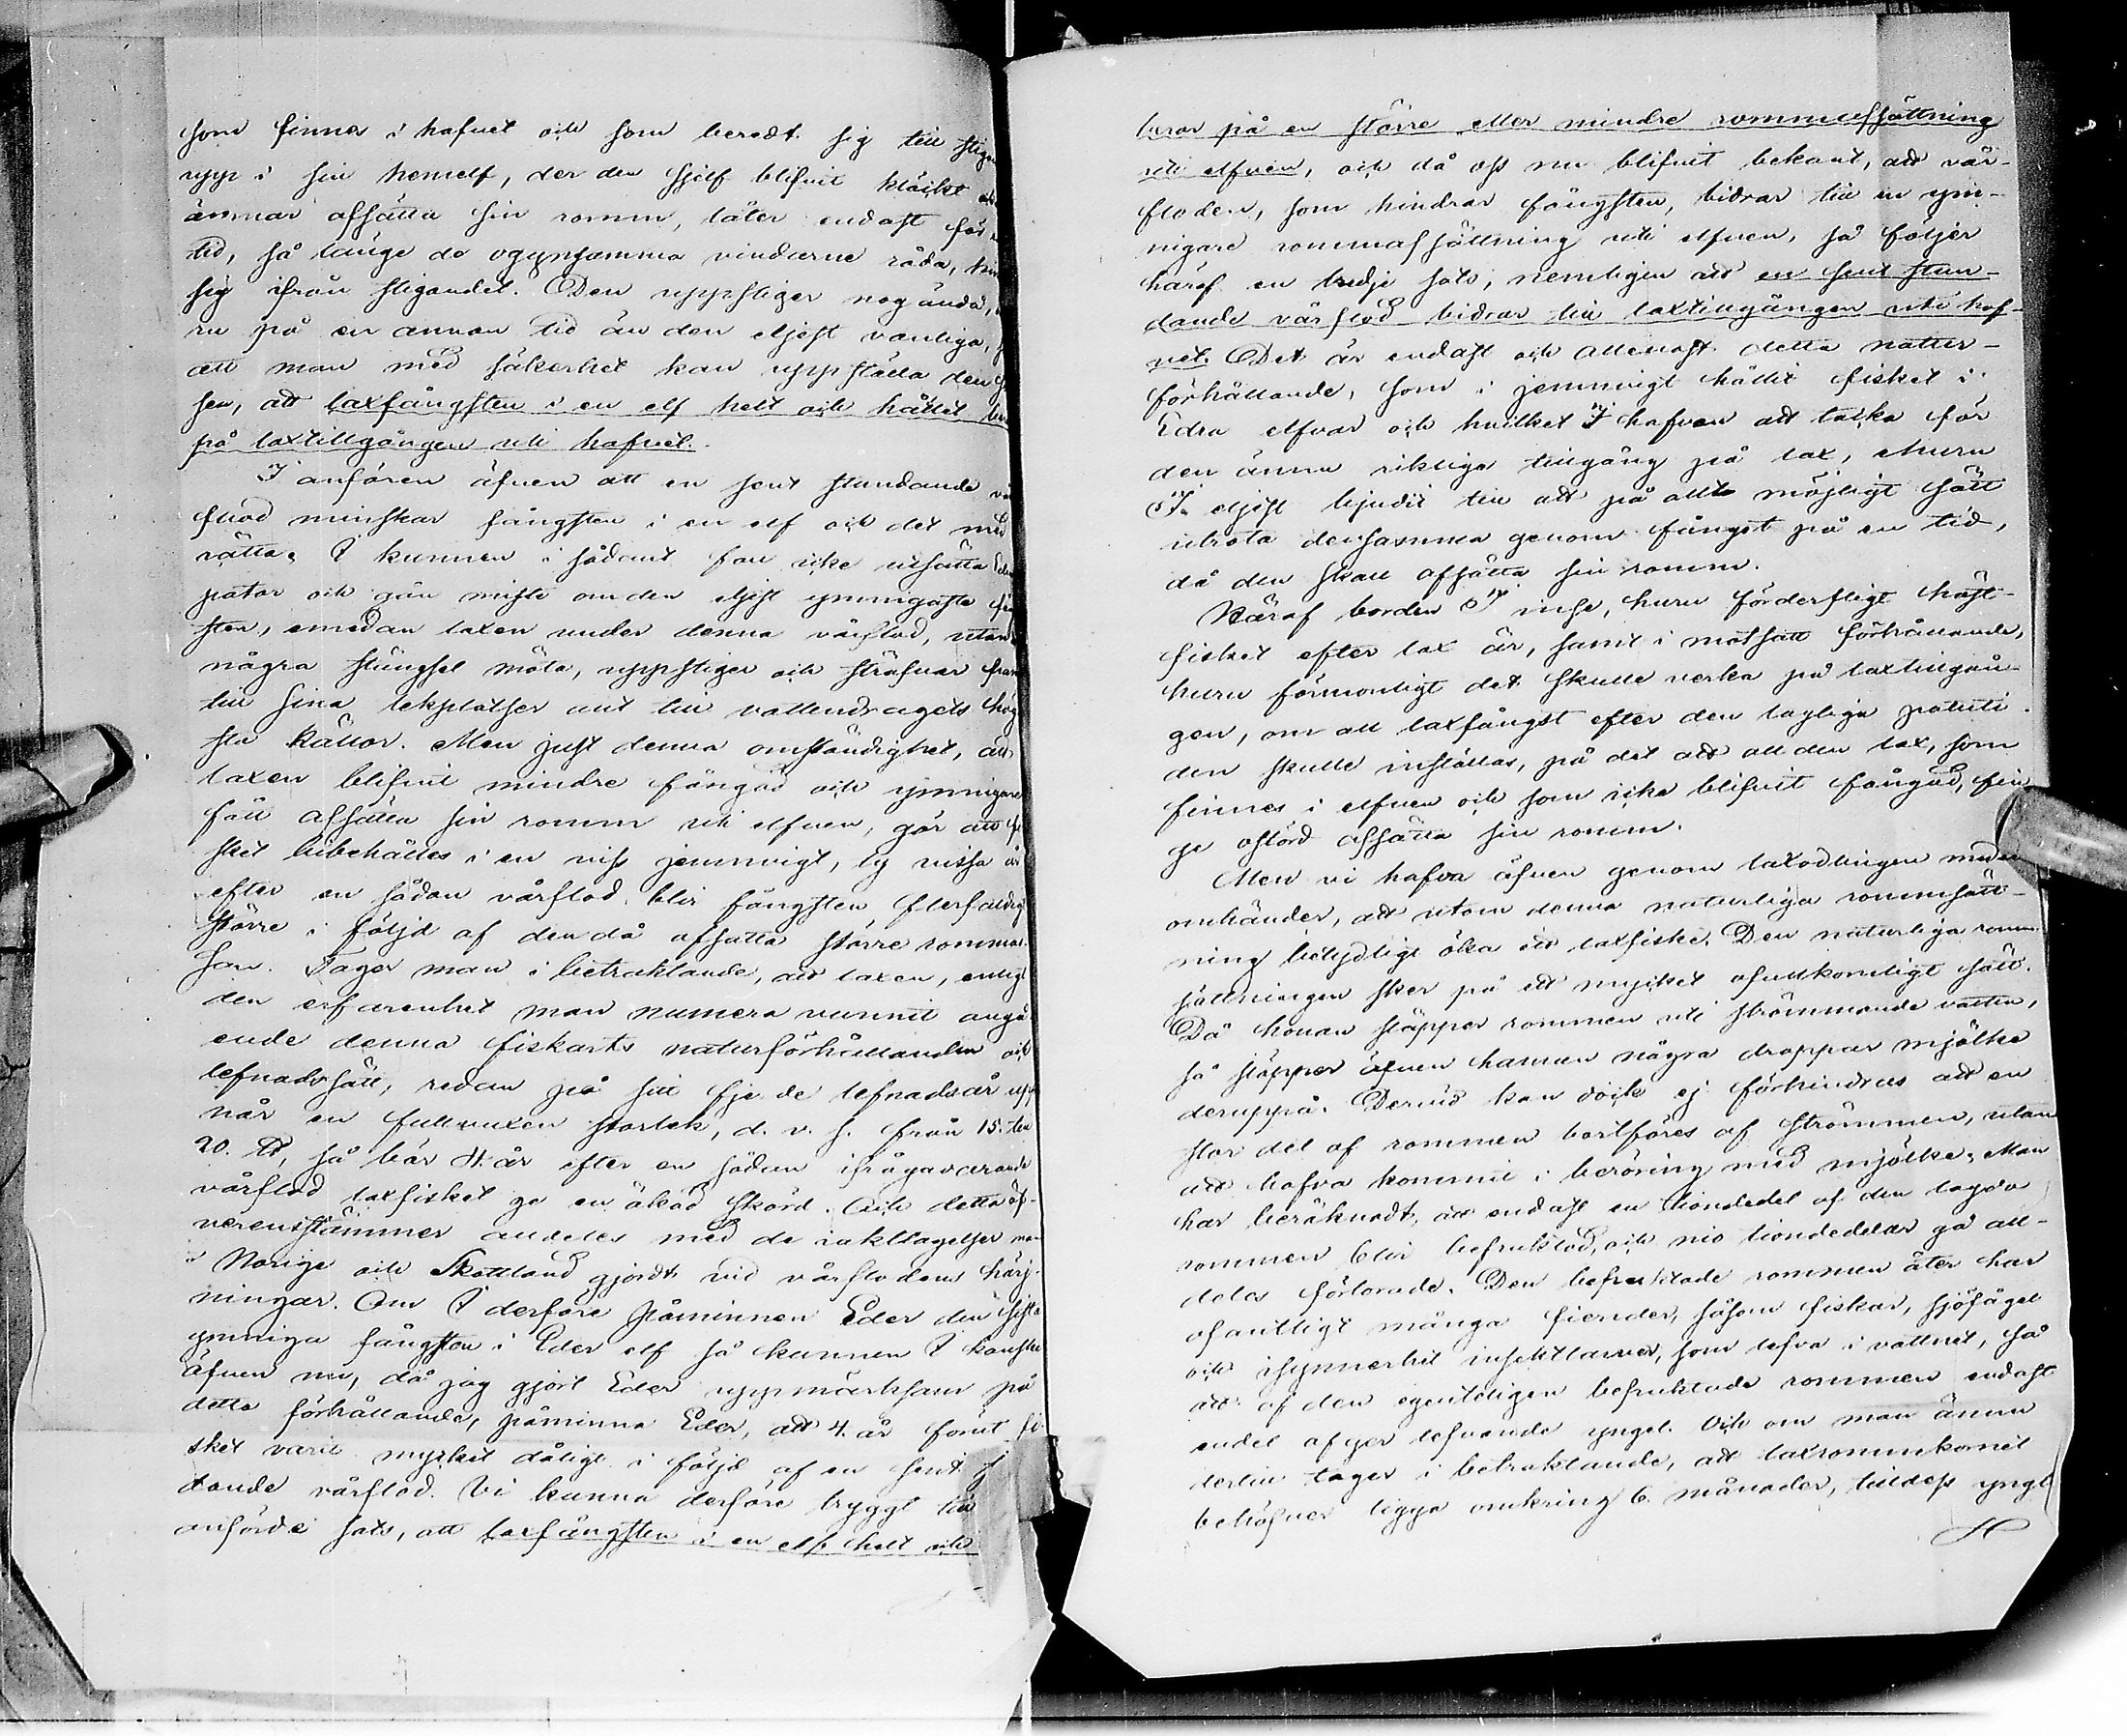 som finnes i hafvet och som beredt sig till stigan
upp i sin hemelf, der den sjelf blifvit kläckt och
ämnar afsätta sin romm, låter endast för en
tid, så länge de ogynsamma vindarne råda, hin
sig ifrån stigandet. Den uppstiger nog ändå,
ru på en annan tid än den eljest vanliga,
att man med säkerhet kan uppställa den
sen, att laxfångsten i en elf helt och hållet ber
på laxtillgången uti hafvet.
I anfören äfven att en sent stundande vår
flod minskar fångsten i en elf och det med
rätta. I kunnen i sådant fall icke utsätta Edra
pator och gån miste om den eljest ymnigaste fång
sten, emedan laxen under denna vårflod, utan
några stängsel möta, uppstiger och sträfvar fram
till sina lekplatser ant till vattendragets hög
sta källor. Men just denna omständighet, att
laxen blifvit mindre fångad och ymnigare
fått afsätta sin romm uti elfven, gör att fi
sket bibehålles i en viss jemnvigt, ty vissa år
efter en sådan vårflod blir fångsten flerfaldigt
större i följd af den då afsatta större romma
sen. Tager man i betraktande, att laxen, enligt
den erfarenhet man numera vunnit angå
ende denna fiskarts naturförhållanden och
lefnadssätt, redan på sitt fjerde lefnadsår upp
når en fullvuxen storlek, d. v. s. från 15. till
20. ℔, så bör 4. år efter en sådan ifrågavarande
vårflod laxfisket ge en ökad skörd. Och detta öf-
verensstämmer alldeles med de iakttagelser man
i Norige och Skottland gjordt vid vårflodens härj-
ningar. Om I derföre påminnen Eder den sista
ymniga fångsten i Eder elf så kunnen I kanske
äfven nu, då jag gjort Eder uppmärksam på
detta förhållande, påminna Eder, att 4. år förut fi-
sket varit mycket dåligt i följd af en sent
dande vårflod. Vi kunna derföre tryggt till
anförde sats, att laxfångsten i en elf helt och
beror på en större eller mindre rommafsättning
uti elfven, och då oss nu blifvit bekant, att vår-
floden, som hindrar fångsten, bidrar till en ym-
nigare rommafsättning uti elfven, så följer
häraf en tredje sats, nemligen att en sent stun-
dande vårflod bidrar till laxtillgången uti haf-
vet. Det är endast och allenast detta natur-
förhållande, som i jemnvigt hållit fisket i
Edra elfvar och hvilket I hafven att tacka för
den ännu rikliga tillgång på lax, ehuru
I eljest bjudit till att på allt möjligt sätt
utrota densamma genom fångst på en tid,
då den skall afsätta sin romm.
Häraf borden I inse, huru förderfligt höst-
fisket efter lax är, samt i motsatt förhållande,
huru förmonligt det skulle verka på laxtillgån-
gen, om all laxfångst efter den lagliga patuti-
den skulle inställas, på det att all den lax, som
finnes i elfven och som icke blifvit fångad, fin
ge ostörd afsätta sin romm.
Men vi hafva äfven genom laxodlingen medel
omhänder, att utom denna naturliga rommsätt-
ning betydligt öka ett laxfiske. Den naturliga romm-
sättningen sker på ett mycket ofullkomligt sätt.
Då honan släpper rommen uti strömmande vatten,
så släpper äfven hannen några droppar mjölke
deruppå. Dervid kan dock ej förhindras att en
stor del af rommen bortföres af strömmen, utan
att hafva kommit i beröring med mjölke. Man
har beräknadt, att endast en tiondedel af den lagda
rommen blir befruktad, och nio tiondedelar gå all-
deles förlorade. Den befruktade rommen åter har
ofantligt många fiender, såsom fiskar, sjöfågel
och isynnerhet insektlarver, som lefva i vattnet, så
att af den egentligen befruktade rommen endast
en del afger lefvande yngel. Och om man ännu
dertill tager i betraktande, att laxrommkornet
behöfver ligga omkring 6. månader, tilldess yngl